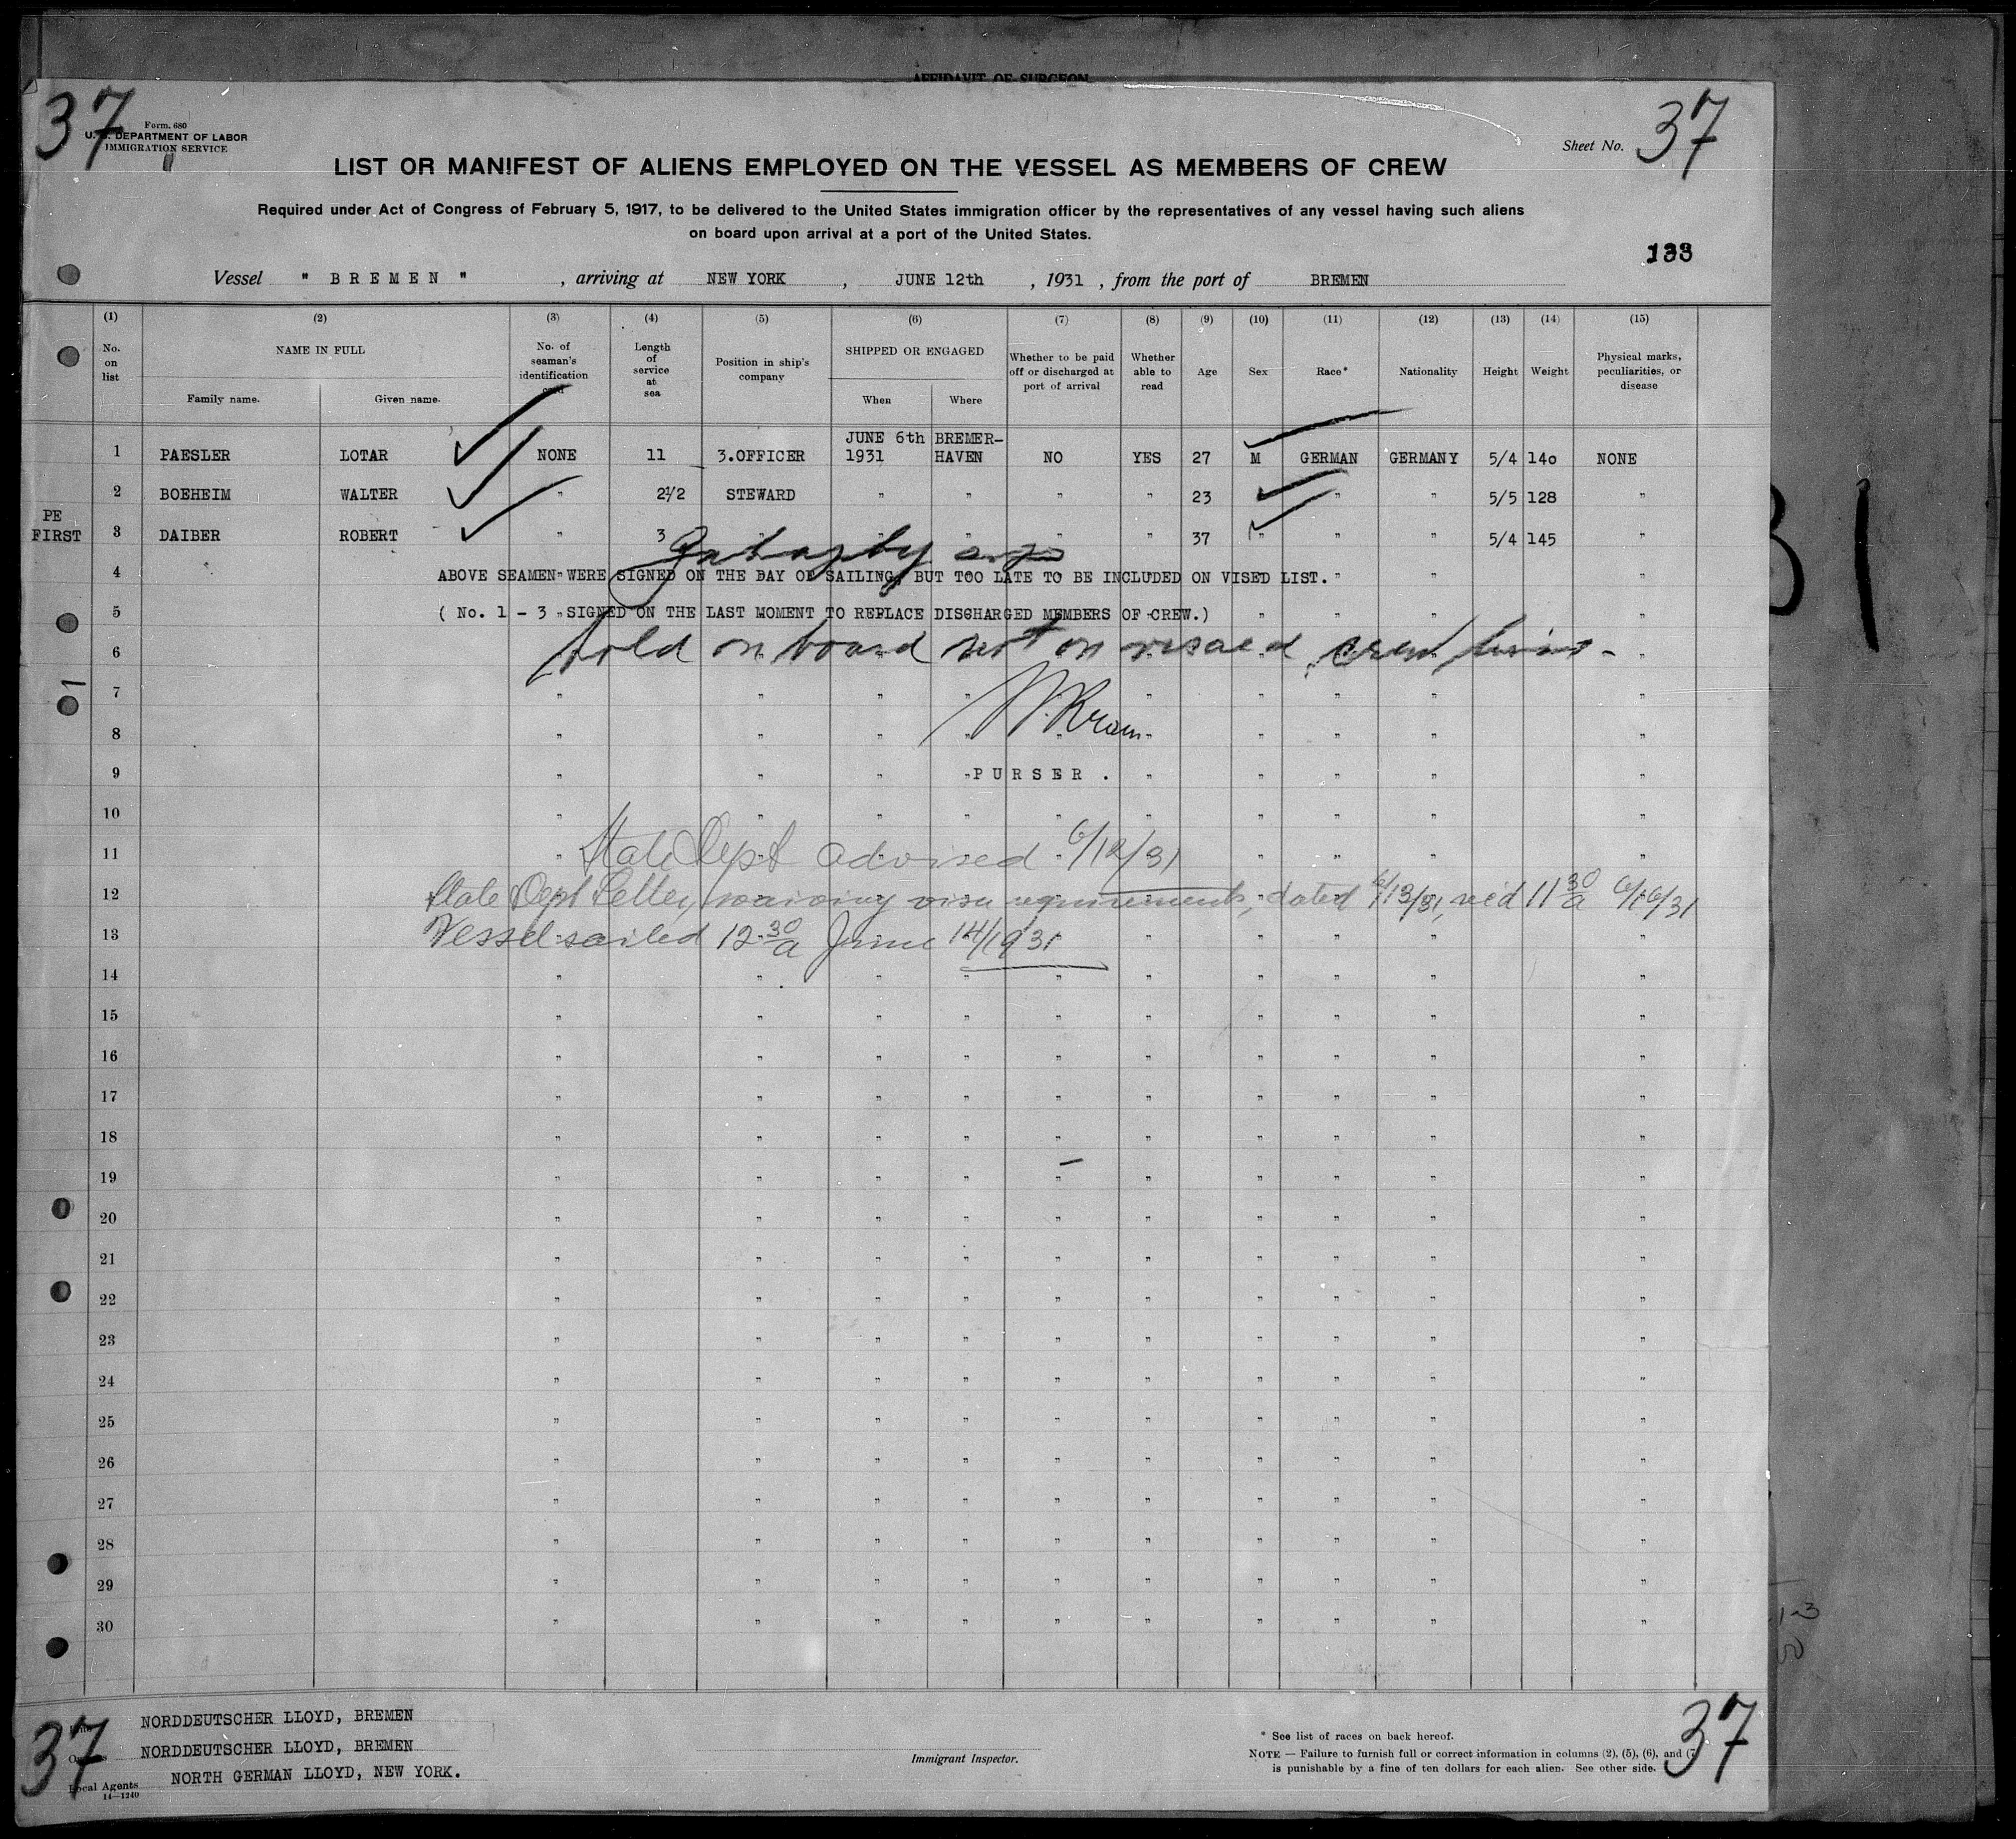 AFFIDAVIT OF SURGEON
37
37
Form. 680
U. S. DEPARTMENT OF LABOR
IMMIGRATION SERVICE
Sheet No.
LIST OR MANIFEST OF ALIENS EMPLOYED ON THE VESSEL AS MEMBERS OF CREW
Required under Act of Congress of February 5, 1917, to be delivered to the United States immigration officer by the representatives of any vessel having such aliens
on board upon arrival at a port of the United States.
133
Vessel " BREMEN " , arriving at NEW YORK , JUNE 12th , 1931 , from the port of BREMEN
(1) (2) (3) (4) (5) (6) (7) (8) (9) (10) (11) (12) (13) (14) (15)
No. on list NAME IN FULL Family name. Given name. No. of seaman's identification card Length of service at sea Position in ship's company SHIPPED OR ENGAGED When Where Whether to be paid off or discharged at port of arrival Whether able to read Age Sex Race* Nationality Height Weight Physical marks, peculiarities, or disease
1 PAESLER LOTAR NONE 11 3.OFFICER JUNE 6th 1931 BREMER-HAVEN NO YES 27 M GERMAN GERMANY 5/4 140 NONE
2 BOEHEIM WALTER " 2½ STEWARD " " " " 23 " " 5/5 128 "
PE FIRST
3 DAIBER ROBERT " 3 " " " " " 37 " " " 5/4 145 "
4 ABOVE SEAMEN WERE SIGNED ON THE DAY OF SAILING, BUT TOO LATE TO BE INCLUDED ON VISED LIST. " " "
5 ( No. 1 - 3 SIGNED ON THE LAST MOMENT TO REPLACE DISCHARGED MEMBERS OF CREW.) " " " "
6 hold on board not on visaed crew
7
8
9 PURSER.
10
11 State Dept advised 6/12/31
12 State Dept Letter, waiving visa requirements, dated 6/13/31, rec'd 11 30 a 6/16/31
13 Vessel sailed 12 30 a June 14/1931
14
15
16
17
18
19
20
21
22
23
24
25
26
27
28
29
30
37
37
NORDDEUTSCHER LLOYD, BREMEN
NORDDEUTSCHER LLOYD, BREMEN
Local Agents NORTH GERMAN LLOYD, NEW YORK.
14—1240
Immigrant Inspector.
* See list of races on back hereof.
NOTE — Failure to furnish full or correct information in columns (2), (5), (6), and (7)
is punishable by a fine of ten dollars for each alien. See other side.